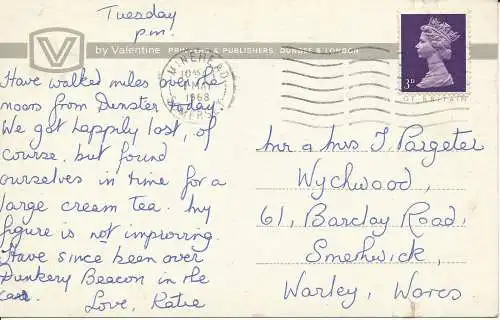 Tuesday
p.m.
V
by Valentine PRINTERS & PUBLISHERS, DUNDEE & LONDON
MINEHEAD
MAY
1968
SOMERSET
3D
GT BRITAIN
Have walked miles over the
moors from Dunster today.
We got happily lost, of
course, but found
ourselves in time for a
large cream tea. My
figure is not improving.
Have since been over
Dunkery Beacon in the
car. Love, Katie
Mr & Mrs J Pargeter
Wychwood,
61, Barclay Road,
Smethwick,
Warley, Worcs